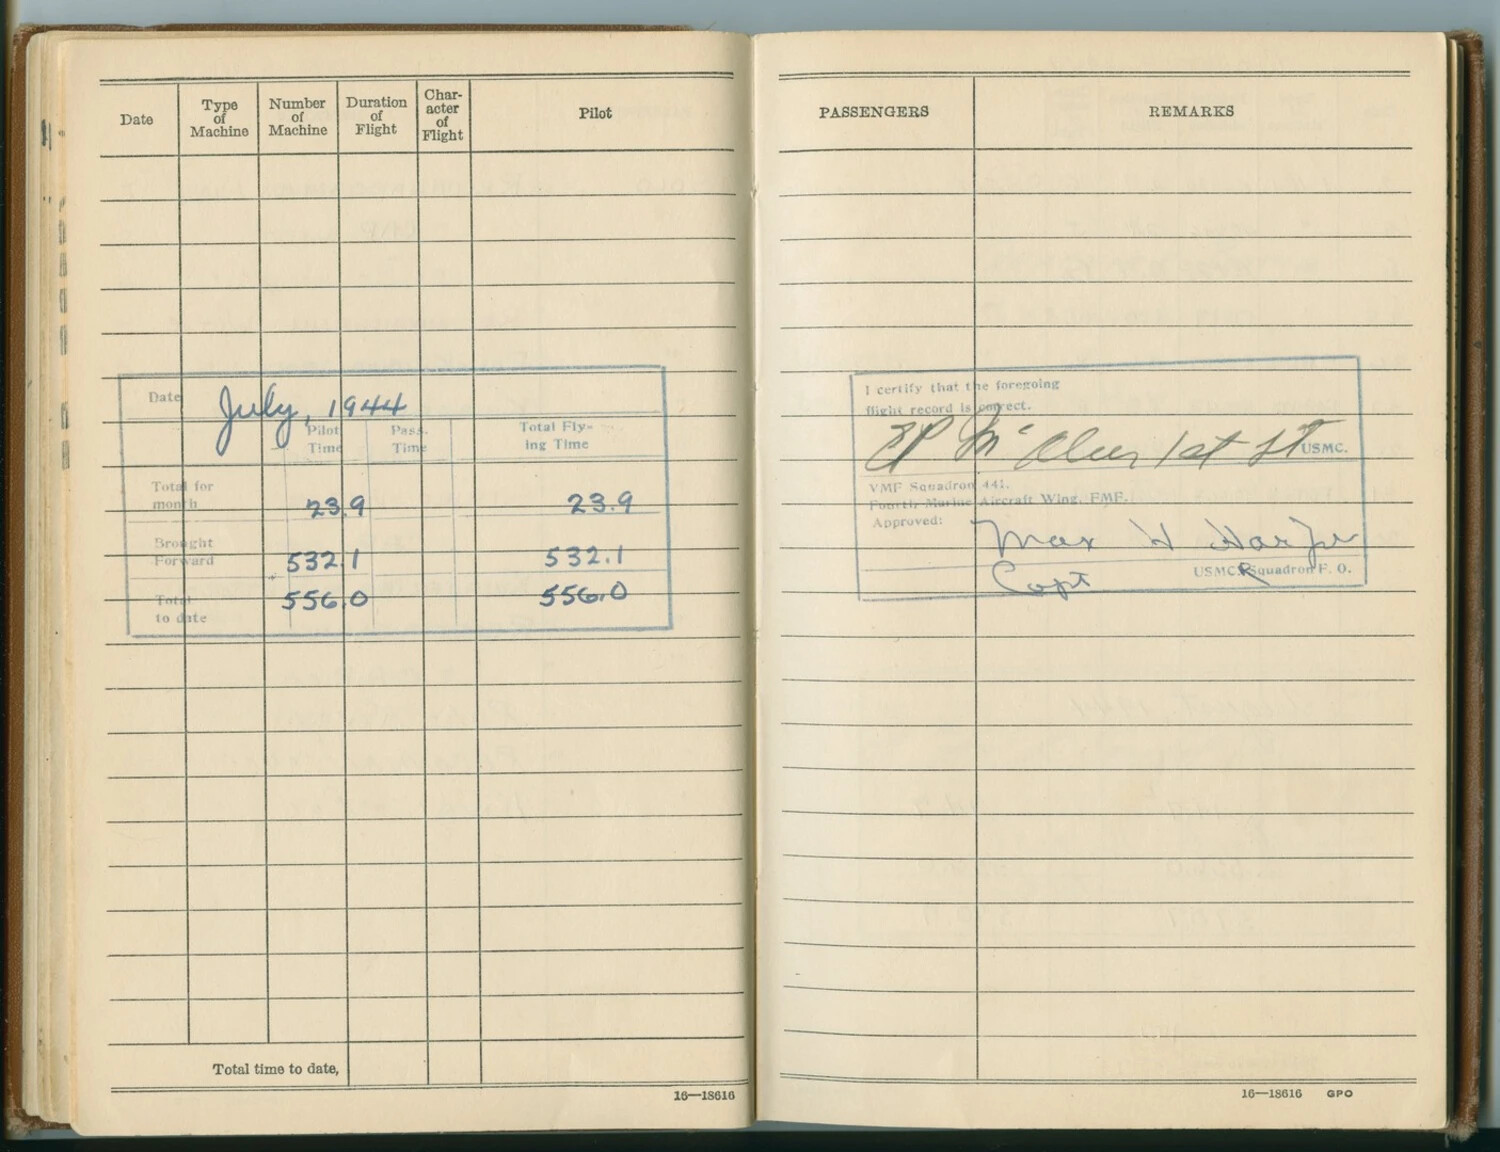 Date
Type of Machine
Number of Machine
Duration of Flight
Char-acter of Flight
Pilot
Date July, 1944
Pilot Time
Pass. Time
Total Fly-ing Time
Total for month 23.9 23.9
Brought Forward 532.1 532.1
Total to date 556.0 556.0
Total time to date,
16—18616
PASSENGERS
REMARKS
I certify that the foregoing
flight record is correct.
1st Lt USMC.
VMF Squadron 441.
Fourth Marine Aircraft Wing, FMF.
Approved:
Max H Harper
Capt USMCR Squadron F. O.
16—18616 GPO